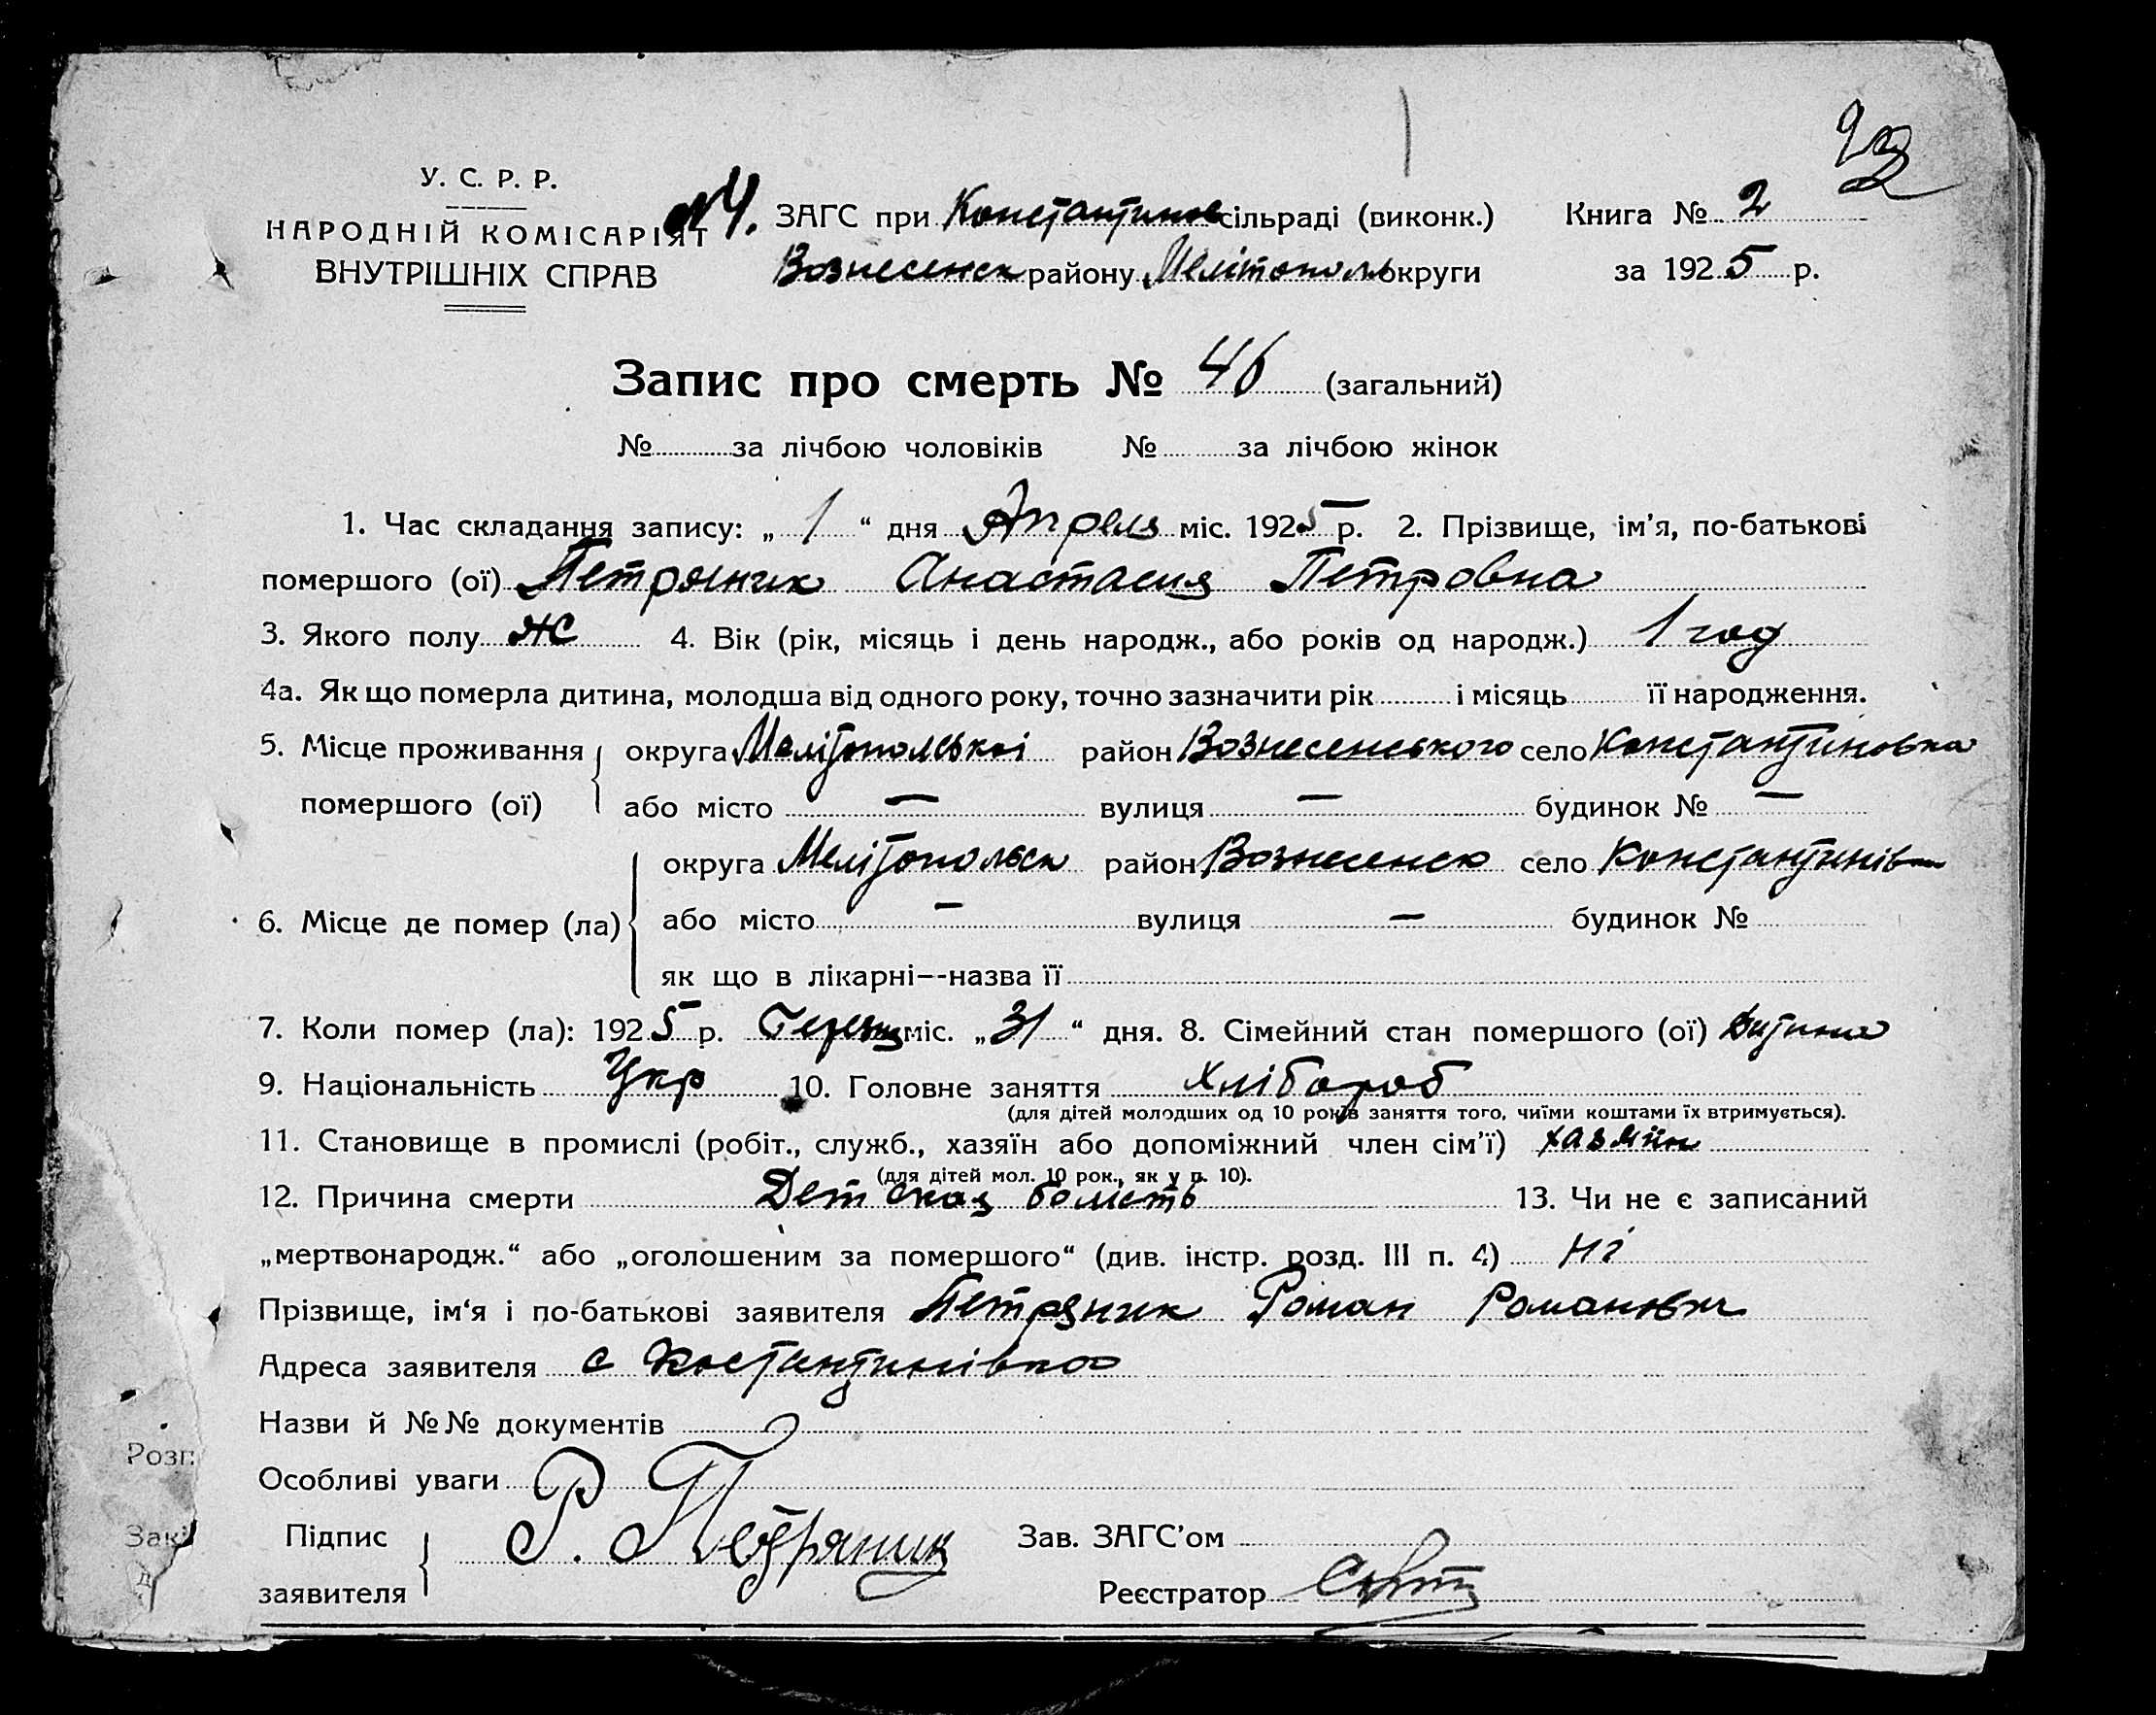 У. С. Р. Р.
НАРОДНІЙ КОМІСАРІЯТ
ВНУТРІШНІХ СПРАВ
№4. ЗАГС при Константинов сільраді (виконк.) Книга № 2
Вознесенск району Мелітополь округи за 1925 р.
Запис про смерть № 46 (загальний)
№ за лічбою чоловіків № за лічбою жінок
1. Час складання запису: „ 1 “ дня Апреля міс. 1925 р. 2. Прізвище, ім'я, по-батькові
помершого (ої) Петряник Анастасия Петровна
3. Якого полу Ж 4. Вік (рік, місяць і день народж., або років од народж.) 1 год
4а. Як що померла дитина, молодша від одного року, точно зазначити рік і місяць її народження.
5. Місце проживання округа Мелітопольскоі район Вознесенського село Константиновка
помершого (ої) або місто — вулиця — будинок № —
округа Мелітопольск район Вознесенск село Константинівка
6. Місце де помер (ла) або місто — вулиця — будинок №
як що в лікарні--назва її
7. Коли помер (ла): 1925 р. міс. „31“ дня. 8. Сімейний стан помершого (ої) Дитина
9. Національність Укр 10. Головне заняття Хлібороб
(для дітей молодших од 10 років заняття того, чиїми коштами їх втримується).
11. Становище в промислі (робіт., служб., хазяїн або допоміжний член сім'ї) хазяїн
(для дітей мол. 10 рок., як у п. 10).
12. Причина смерти Детская 13. Чи не є записаний
„мертвонародж.“ або „оголошеним за помершого“ (див. інстр. розд. III п. 4) Ні
Прізвище, ім‘я і по-батькові заявителя Петряник Роман Романович
Адреса заявителя с Костянтинівка
Назви й №№ документів
Розп
Особливі уваги
Підпис Р. Петряник Зав. ЗАГС'ом
Закі
заявителя Реєстратор